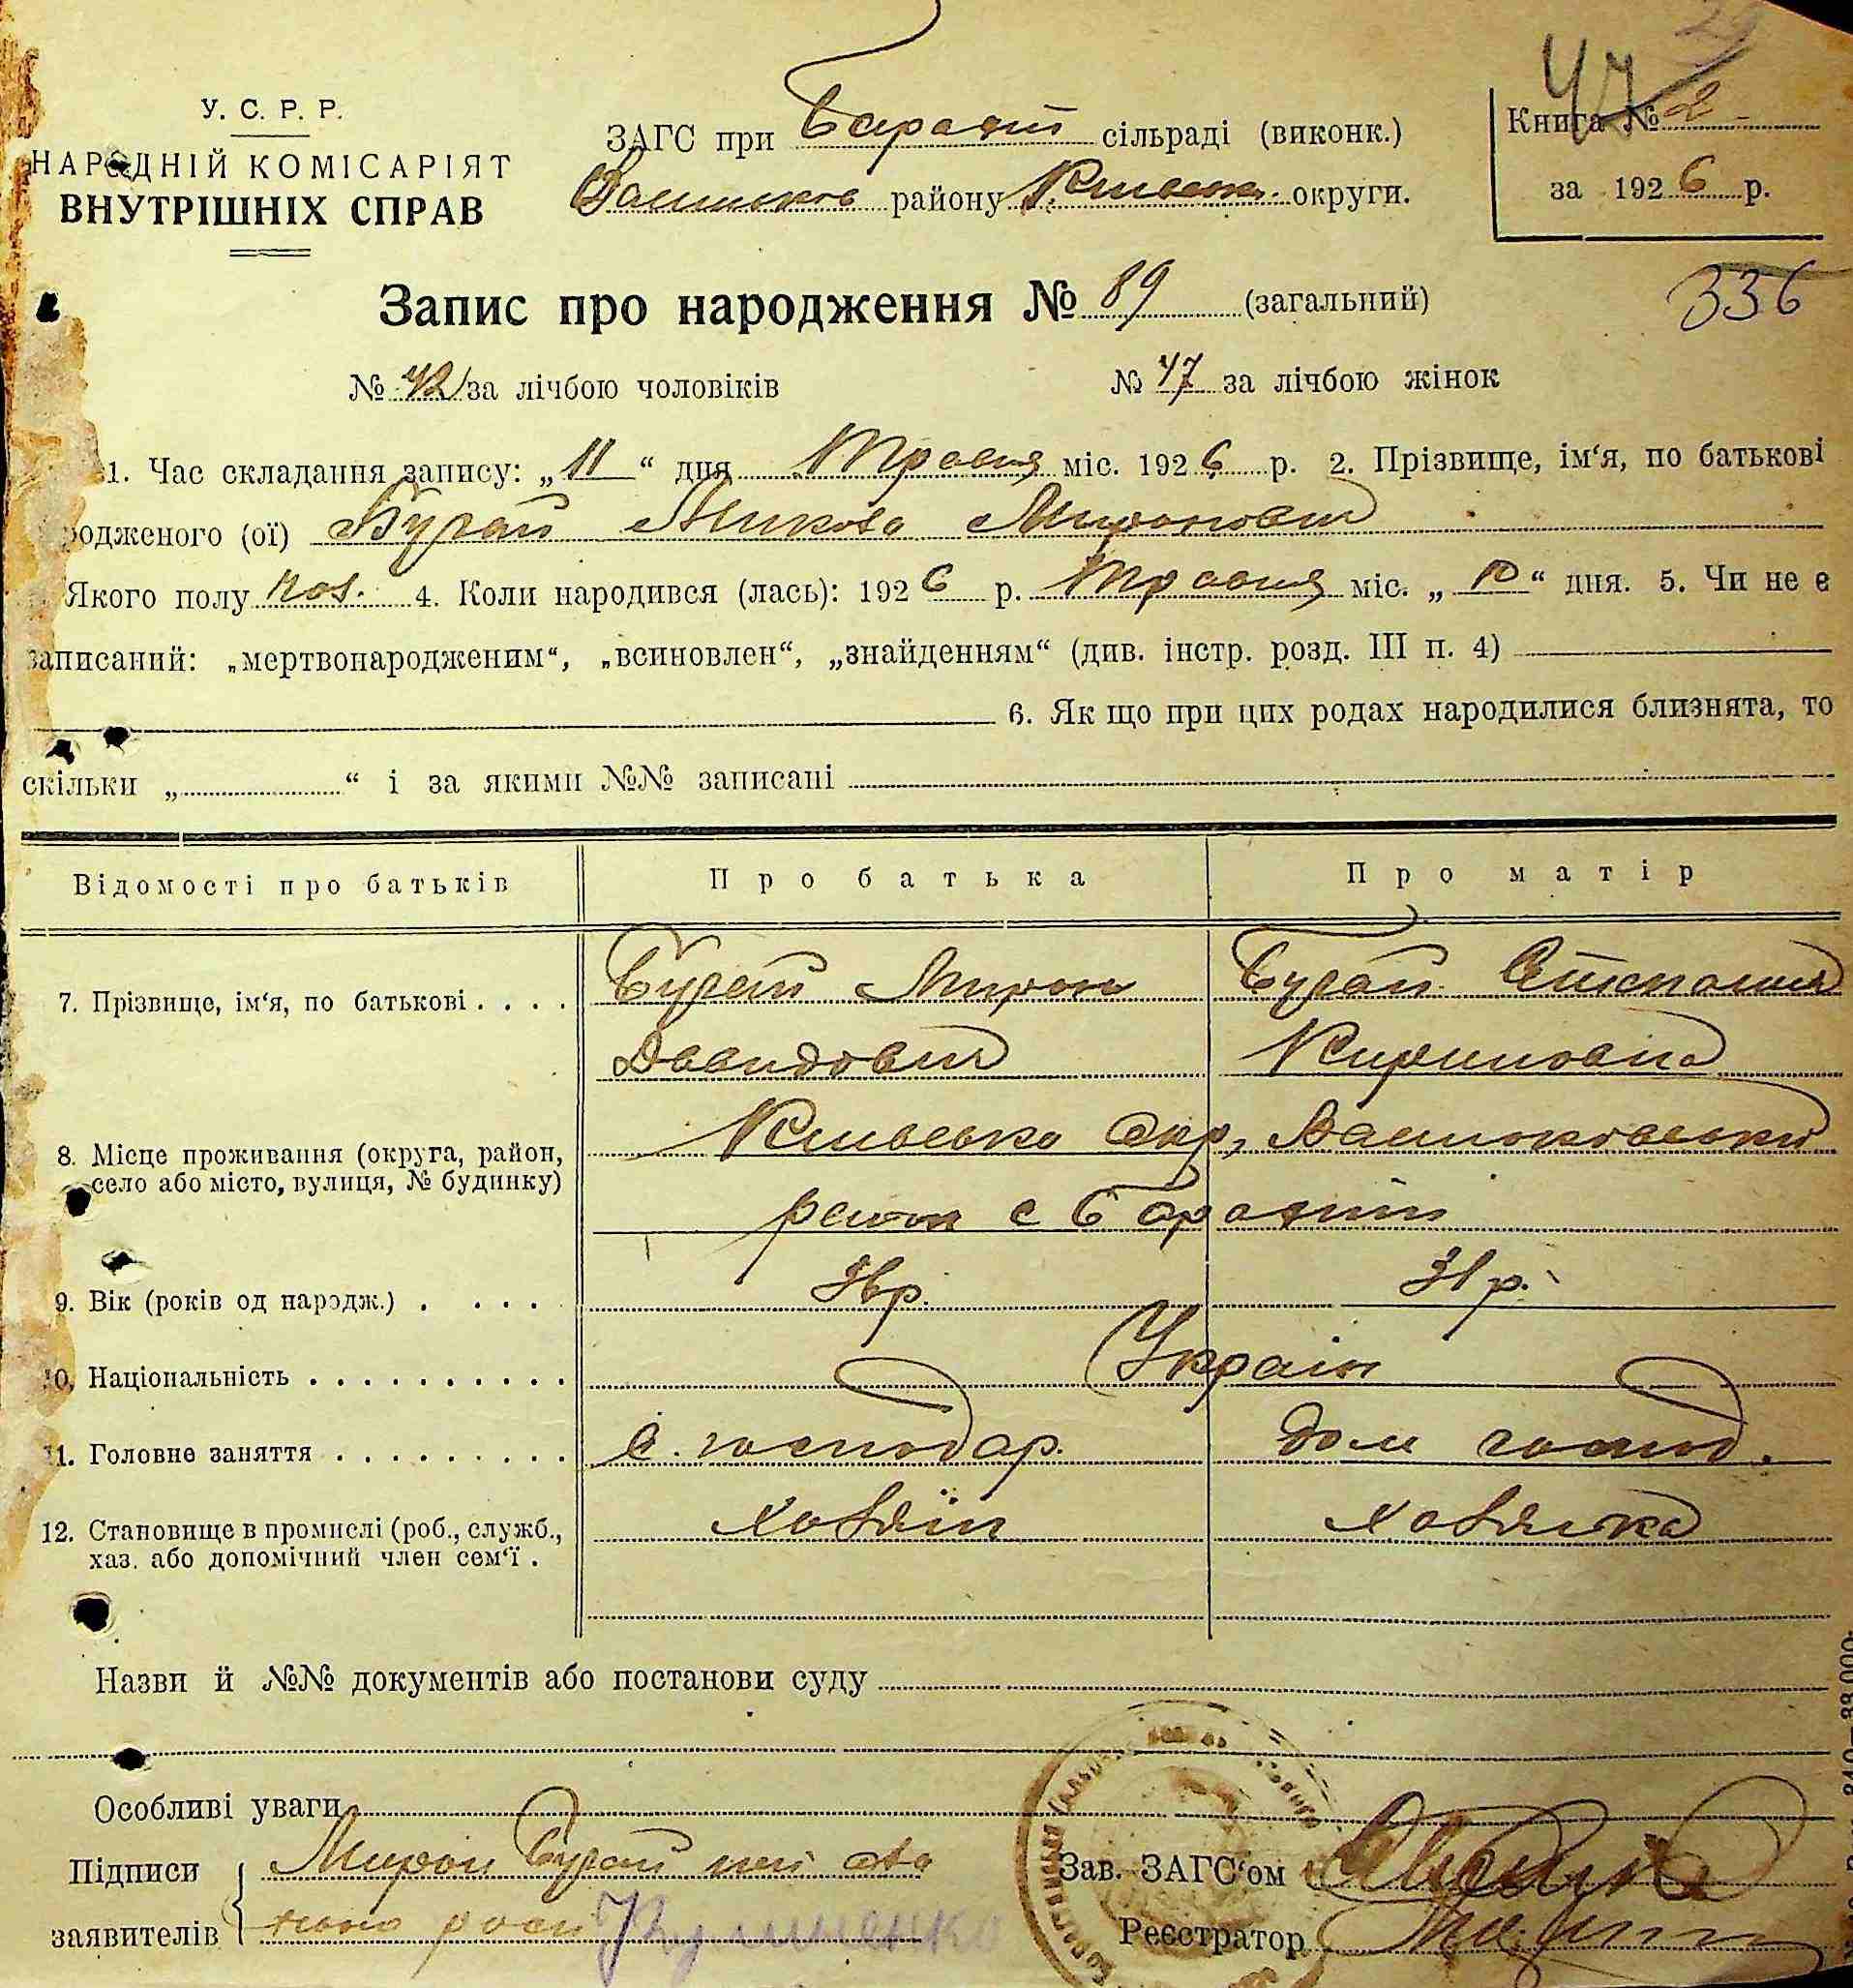 У. С. Р. Р.
НАРОДНІЙ КОМІСАРІЯТ
ВНУТРІШНІХ СПРАВ
ЗАГС при Барахті сільраді (виконк.)
району Київськ. округи.
47
Книга № 2
за 1926 р.
Запис про народження № 89 (загальний)
336
№ 42 за лічбою чоловіків
№ 47 за лічбою жінок
1. Час складання запису: „ 11 “ дня Травня міс. 1926 р. 2. Прізвище, ім‘я, по батькові
родженого (ої) Бугай Микола Миронович
Якого полу чол. 4. Коли народився (лась): 1926 р. Травня міс. „ 10 “ дня. 5. Чи не є
записаний: „мертвонародженим“, „всиновлен“, „знайденням“ (див. інстр. розд. III п. 4)
6. Як що при цих родах народилися близнята, то
скільки „ “ і за якими №№ записані
Відомості про батьків Про батька Про матір
7. Прізвище, ім‘я, по батькові . . . . Бугай Мирон Бугай Степанида
Давидович Кирилівна
8. Місце проживання (округа, район, Київська Окр, Васильковський
село або місто, вулиця, № будинку) район с Барахти
9. Вік (років од народж.) . . . . . 36р. 31р.
10. Національність . . . . . . . . . . Україн
11. Головне заняття . . . . . . . . . С. господар. дом господ.
12. Становище в промислі (роб., служб., Хазяїн Хазяйка
хаз. або допомічний член сем‘ї .
Назви й №№ документів або постанови суду
Особливі уваги
Підписи Мирон Бугай
заявителів Кулиненко
Зав. ЗАГС‘ом
Реєстратор